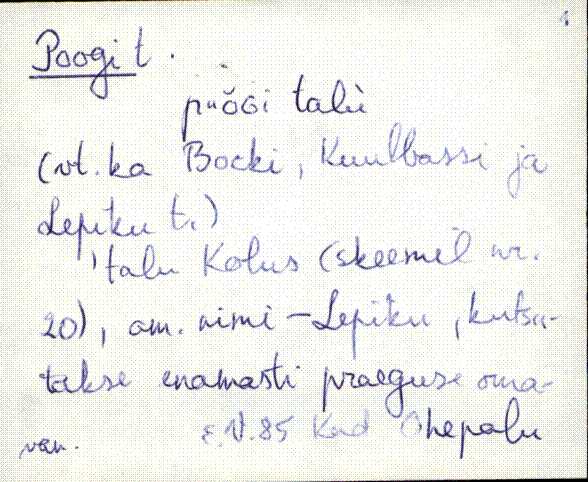 Poogi t.
talu
(vt. ka Bocki, Kuulbassi ja
Lepiku t.)
'talu Kolus (skeemil nr.
20), am. nimi – Lepiku, kutsu-
takse enamasti praeguse oma-
E.V.85 Kad Ohepalu